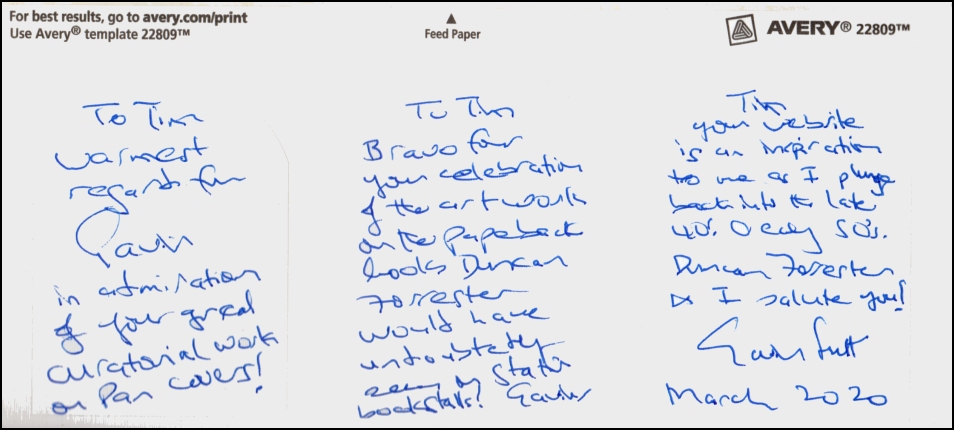 For best results, go to avery.com/print
Use Avery® template 22809™
▲
Feed Paper
AVERY® 22809™
To Tim
warmest
regards from
Gavin
in admiration
of your great
curatorial work
on Pan covers!
To Tim
Bravo for
your celebration
of the artwork
on the papeback
books Duncan
Forrester
would have
undoubtedly
seen on Station
bookstalls! Gavin
Tim
your website
is an inspiration
to me as I plunge
back into the late
40s. & early 50's.
Duncan Forrester
& I salute you!
Gavin
March 2020